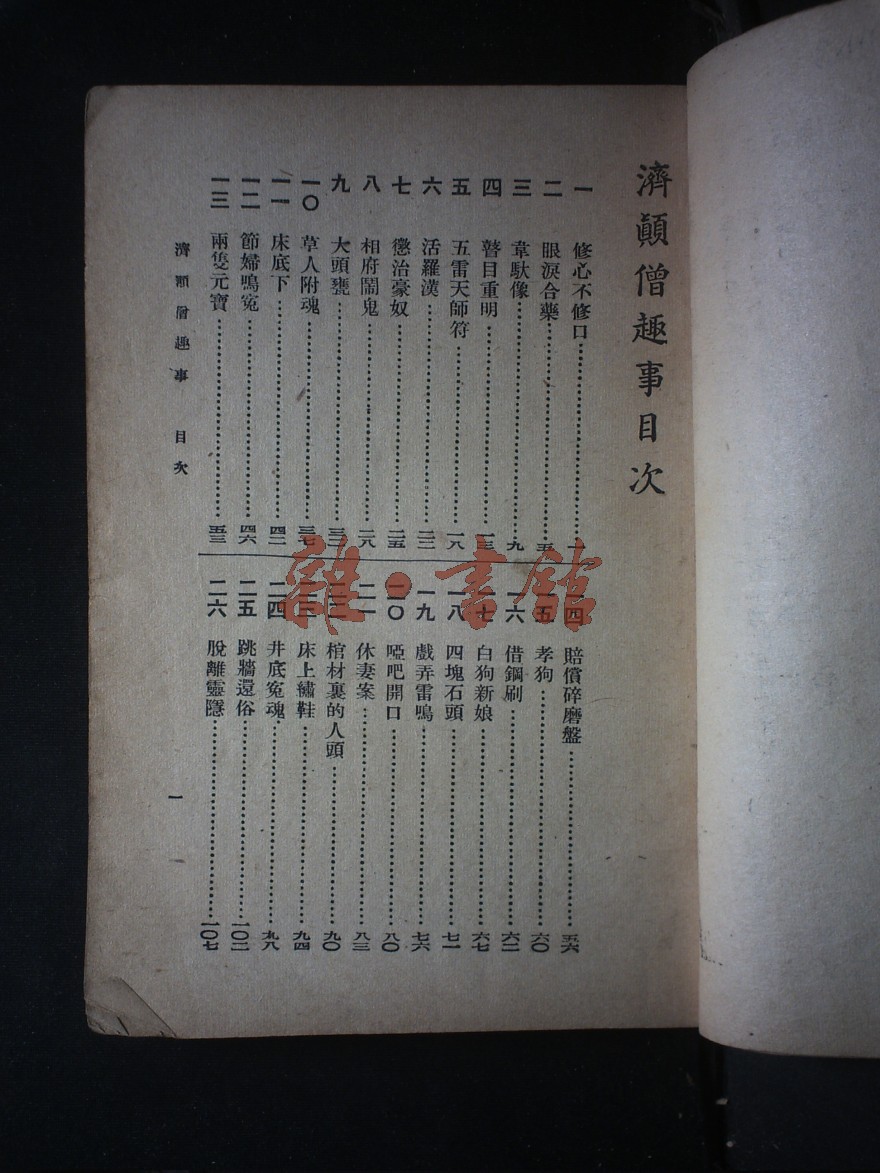 濟顚僧趣事目次
一 修心不修口…………一
二 眼淚合藥…………五
三 韋馱像…………九
四 瞽目重明…………一三
五 五雷天師符…………一八
六 活羅漢…………二二
七 懲治豪奴…………二五
八 相府鬧鬼…………二八
九 大頭甕…………三二
一〇 草人附魂…………三七
一一 床底下…………四二
一二 節婦鳴冤…………四六
一三 兩隻元寶…………五三
一四 賠償碎磨盤…………五六
一五 孝狗…………六〇
一六 借鋼刷…………六二
一七 白狗新娘…………六七
一八 四塊石頭…………七一
一九 戲弄雷鳴…………七六
二〇 啞吧開口…………八〇
二一 休妻案…………八三
二二 棺材裏的人頭…………九〇
二三 床上繡鞋…………九四
二四 井底冤魂…………九八
二五 跳牆還俗…………一〇二
二六 脫離靈隱…………一〇七
濟顚僧趣事 目次
一
雜·書館